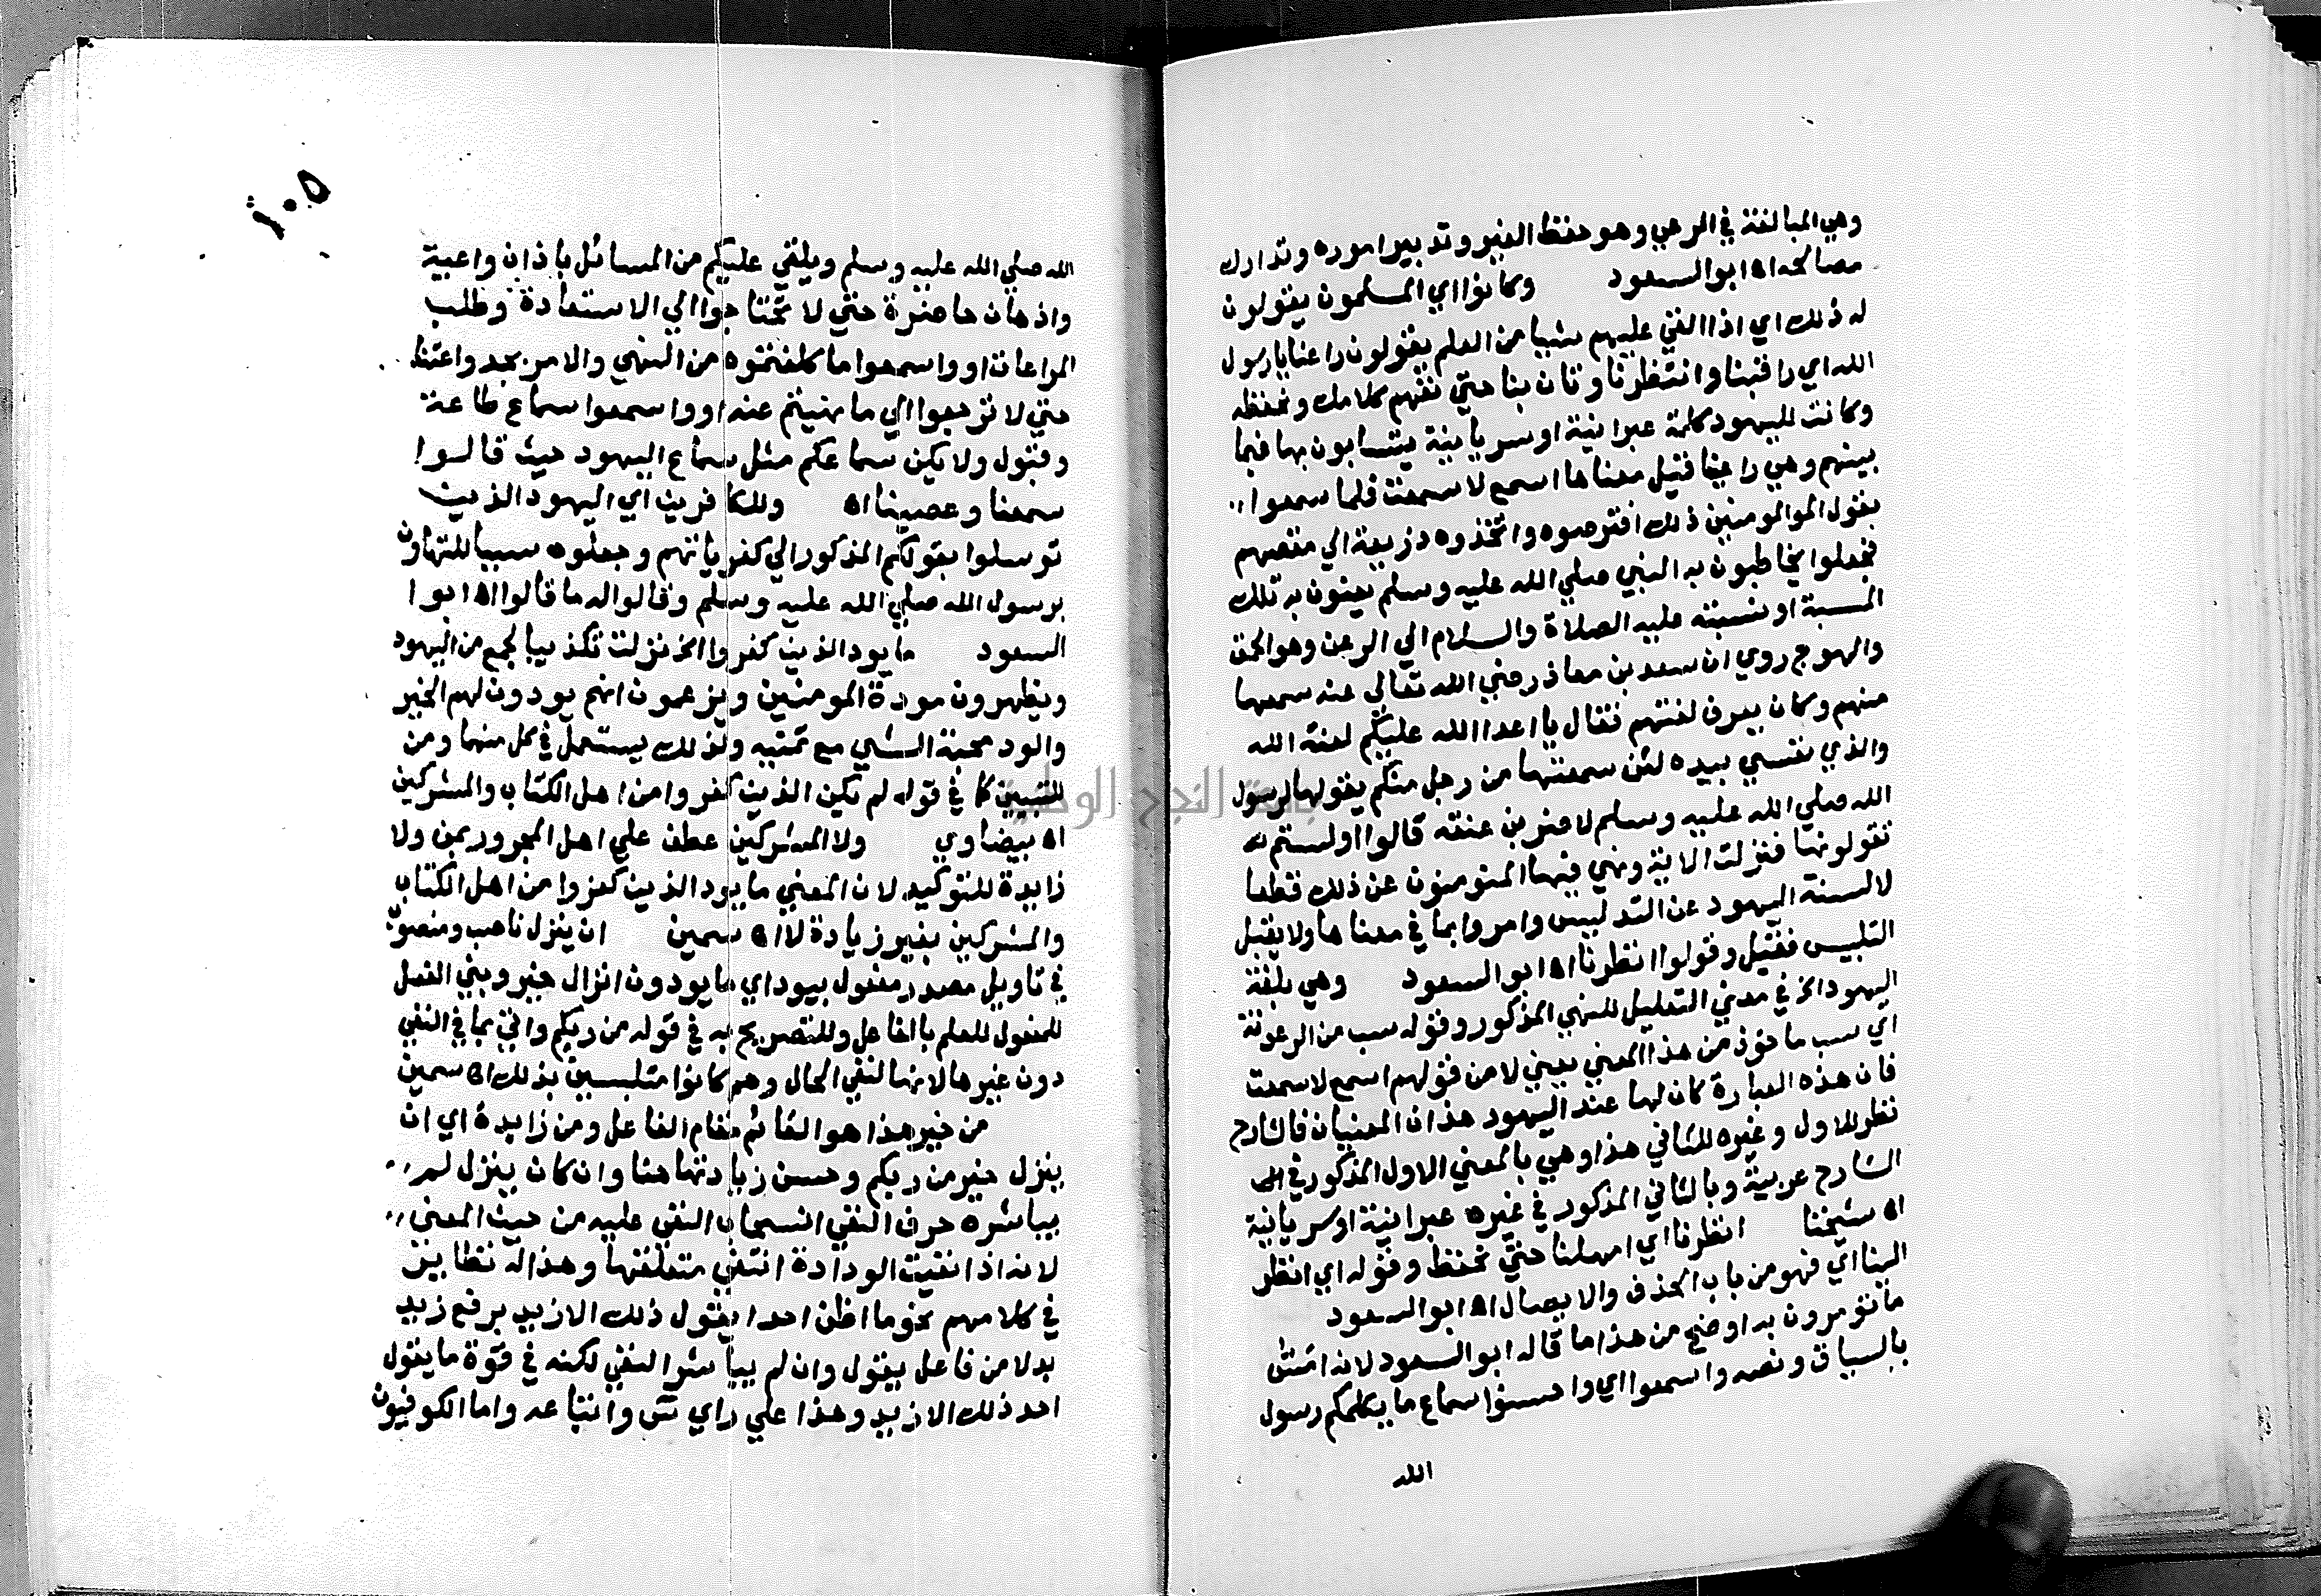 وهي المبالغة في الرعي وهو حفظ الغير وتدبير اموره وتدارك
مصالحه اه ابو السعود وكانوا اي المسلمون يقولون
له ذلك اي اذا القي عليهم شيا من العلم يقولون راعنا يا رسول
الله اي راقبنا وانتظرنا وتان بنا حتي نفهم كلامك ونحفظه
وكانت لليهود كلمة عبرانية او سريانية يتسابون بها فيما
بينهم وهي راعنا فقيل معناها اسمع لا سمعت فلما سمعوا
بقول المومنين ذلك افترصوه واتخذوه ذريعة الي مقصدهم
فجعلوا يخاطبون به النبي صلي الله عليه وسلم يعنون به تلك
المسبة او نسبته عليه الصلاة والسلام الي الرعن وهو الحمق
والهوج روي ان سعد بن معاذ رضي الله تعالي عنه سمعها
منهم وكان يعرف لغتهم فقال يا اعدا الله عليكم لعنة الله
والذي نفسي بيده لئن سمعتها من رجل منكم يقولها لرسول
الله صلي الله عليه وسلم لاضربن عنقه قالوا اولستم
تقولونها فنزلت الاية ونهي فيها المومنون عن ذلك قطعا
لالسنة اليهود عن التدليس وامروا بما في معناها ولا يقبل
التلبيس فقيل وقولوا انظرنا اه ابو السعود وهي بلغة
اليهود الخ في معني التعليل للنهي المذكور وقوله سب من الرعونة
اي سب ماخوذ من هذا المعني يعني لا من قولهم اسمع لا سمعت
فان هذه العبارة كان لها عند اليهود هذان المعنيان فالشارح
نظر للاول وغيره للثاني هذا وهي بالمعني الاول المذكور في
الشارح عربية وبالثاني المذكور في غيره عبرانية او سريانية
اه شيخنا انظرنا اي امهلنا حتي نحفظ وقوله اي انظر
الينا اي فهو من باب الحذف والايصال اه ابو السعود
ما تومرون به اوضح من هذا ما قاله ابو السعود لانه امس
بالسياق ونصه واسمعوا اي واحسنوا سماع ما يكلمكم رسول
الله
١٠٥
الله صلي الله عليه وسلم ويلقي عليكم من المسائل باذان واعية
واذهان حاضرة حتي لا تحتاجوا الي الاستعادة وطلب
المراعاة او واسمعوا ما كلفتموه من النهي والامر بجد واعتنا
حتي لا ترجعوا الي ما نهيتم عنه او واسمعوا سماع طاعة
وقبول ولا يكن سماعكم مثل سماع اليهود حيث قالوا
سمعنا وعصينا اه وللكافرين اي اليهود الذين
توسلوا بقولكم المذكور الي كفرياتهم وجعلوه سببا للتهاون
برسول الله صلي الله عليه وسلم وقالوا له ما قالوا اه ابوا
السعود ما يود الذين كفروا الخ نزلت تكذيبا لجمع من اليهود
ويظهرون مودة المومنين ويزعمون انهم يودون لهم الخير
والود محبة الشي مع تمنيه ولذلك يستعمل في كل منهما ومن
للتبيين كما في قوله لم يكن الذين كفروا من اهل الكتاب والمشركين
اه بيضاوي ولا المشركين عطف علي اهل المجرور بمن ولا
زايدة للتوكيد لان المعني ما يود الذين كفروا من اهل الكتاب
والمشركين بغير زيادة لا اه سمين ان ينزل ناصب ومنصوب
في تاويل مصدر مفعول بيود اي ما يودون انزال خير وبني الفعل
للمفعول للعلم بالفاعل وللتصريح به في قوله من ربكم واتي بما في النفي
دون غيرها لانها لنفي الحال وهم كانوا متلبسين بذلك اه سمين
من خير هذا هو القائم مقام الفاعل ومن زايدة اي ان
ينزل خير من ربكم وحسن زيادتها هنا وان كان ينزل لم
يباشره حرف النفي انسحاب النفي عليه من حيث المعني
لانه اذا نفيت الودادة انتفي متعلقها وهذا له نظاير
في كلامهم نحو ما اظن احدا يقول ذلك الا زيد برفع زيد
بدلا من فاعل يقول وان لم يباشر النفي لكنه في قوة ما يقول
احد ذلك الا زيد وهذا علي راي س واتباعه واما الكوفيون
جامعة النجاح الوطنية